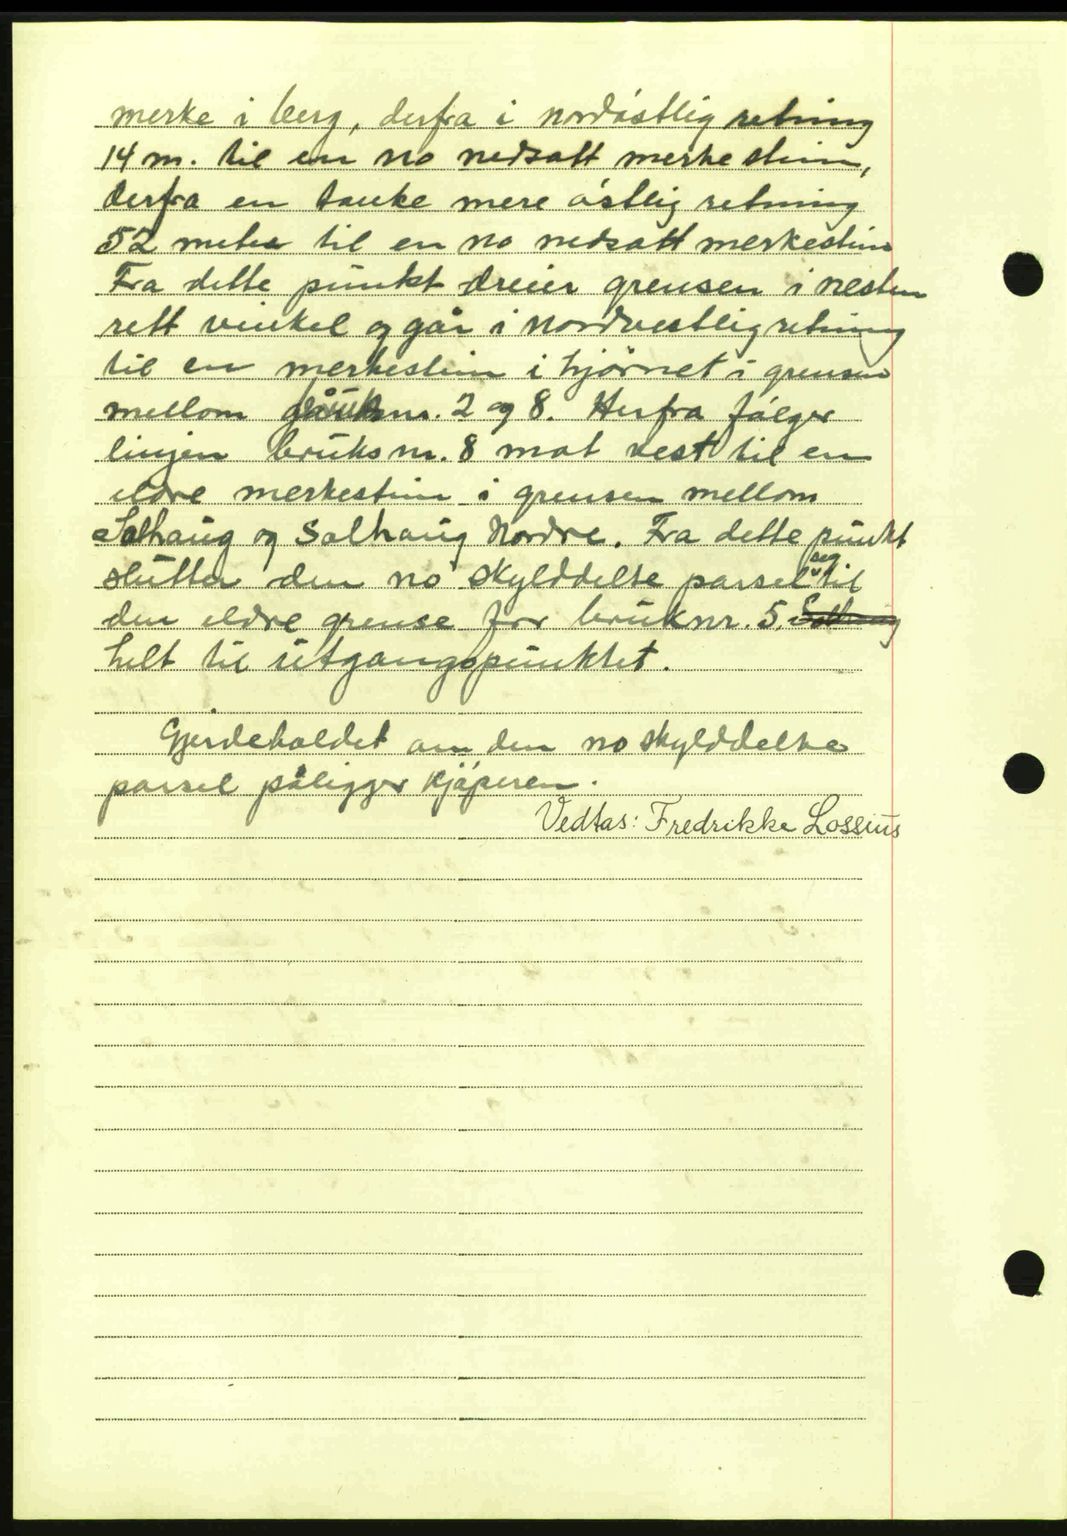 merke i berg, derfra i nordóstlig retning
14 m. til en no nedsatt merkestein,
derfra en tanke mere óstlig retning
52 meter til en no nedsatt merkestein
Fra dette punkt dreier grensen i nesten
rett vinkel og går i nordvestlig retning
til en merkestein i hjörnet i grensen
mellom bruksnr. 2 og 8. Herfra fólger
linjen bruksnr. 8 mot vest til en
eldre merkestein i grensen mellom
Solhaug og Solhaug Nordre. Fra dette punkt
slutter den no skylddelte parsel seg til
den eldre grense for bruknr. 5. Solhaug
helt til utgangspunktet.
Gjerdeholdet om den no skylddelte
parsel påligger kjóperen.
Vedtas: Fredrikke Lossius